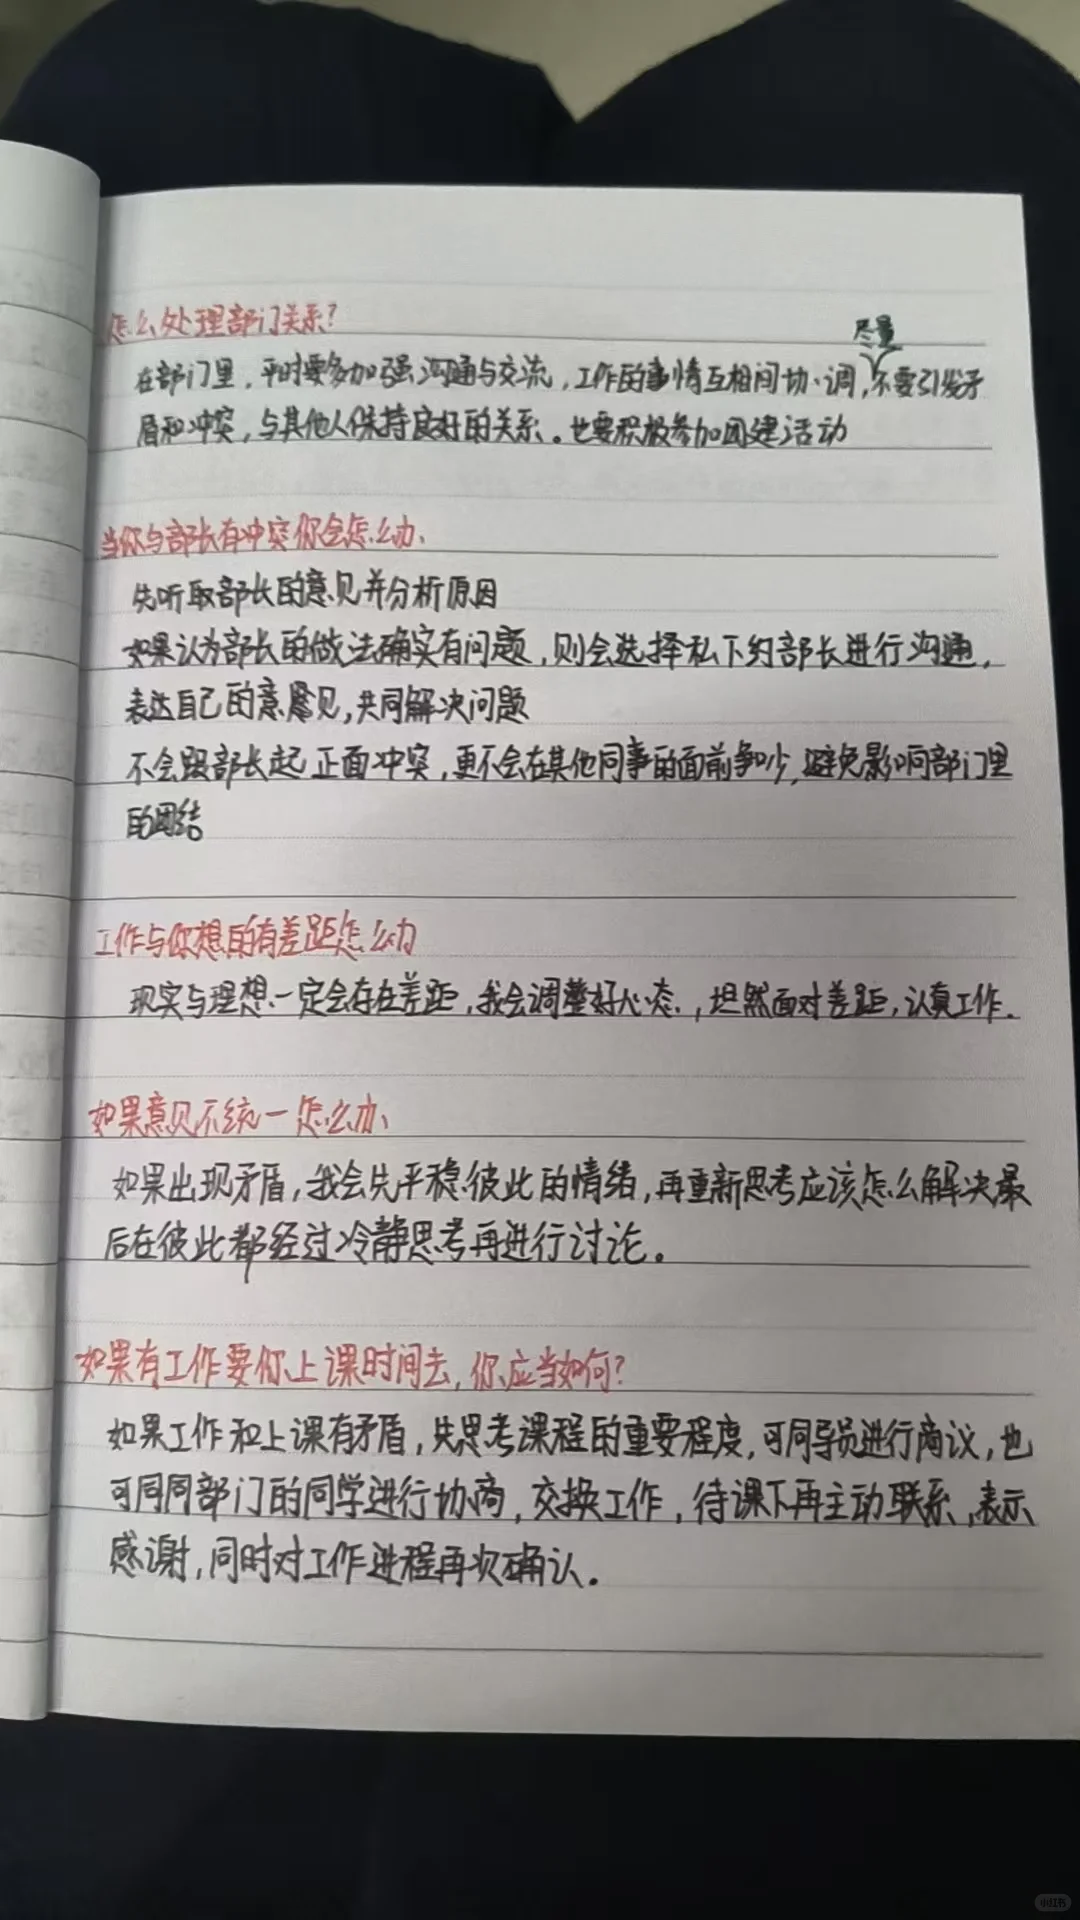 怎么处理部门关系?
尽量
在部门里,平时要多加强沟通与交流,工作的事情互相间协调,不要引发矛
盾和冲突,与其他人保持良好的关系。也要积极参加团建活动
当你与部长有冲突你会怎么办、
先听取部长的意见并分析原因
如果认为部长的做法确实有问题,则会选择私下约部长进行沟通,
表达自己的意见,共同解决问题
不会跟部长起正面冲突,更不会在其他同事的面前争吵,避免影响部门里
的团结
工作与你想的有差距怎么办
现实与理想一定会存在差距,我会调整好心态,坦然面对差距,认真工作.
如果意见不统一怎么办、
如果出现矛盾,我会先平稳彼此的情绪,再重新思考应该怎么解决最
后在彼此都经过冷静思考再进行讨论。
如果有工作要你上课时间去,你应当如何?
如果工作和上课有矛盾,先思考课程的重要程度,可同导员进行商议,也
可同同部门的同学进行协商,交换工作,待课下再主动联系,表示
感谢,同时对工作进程再次确认.